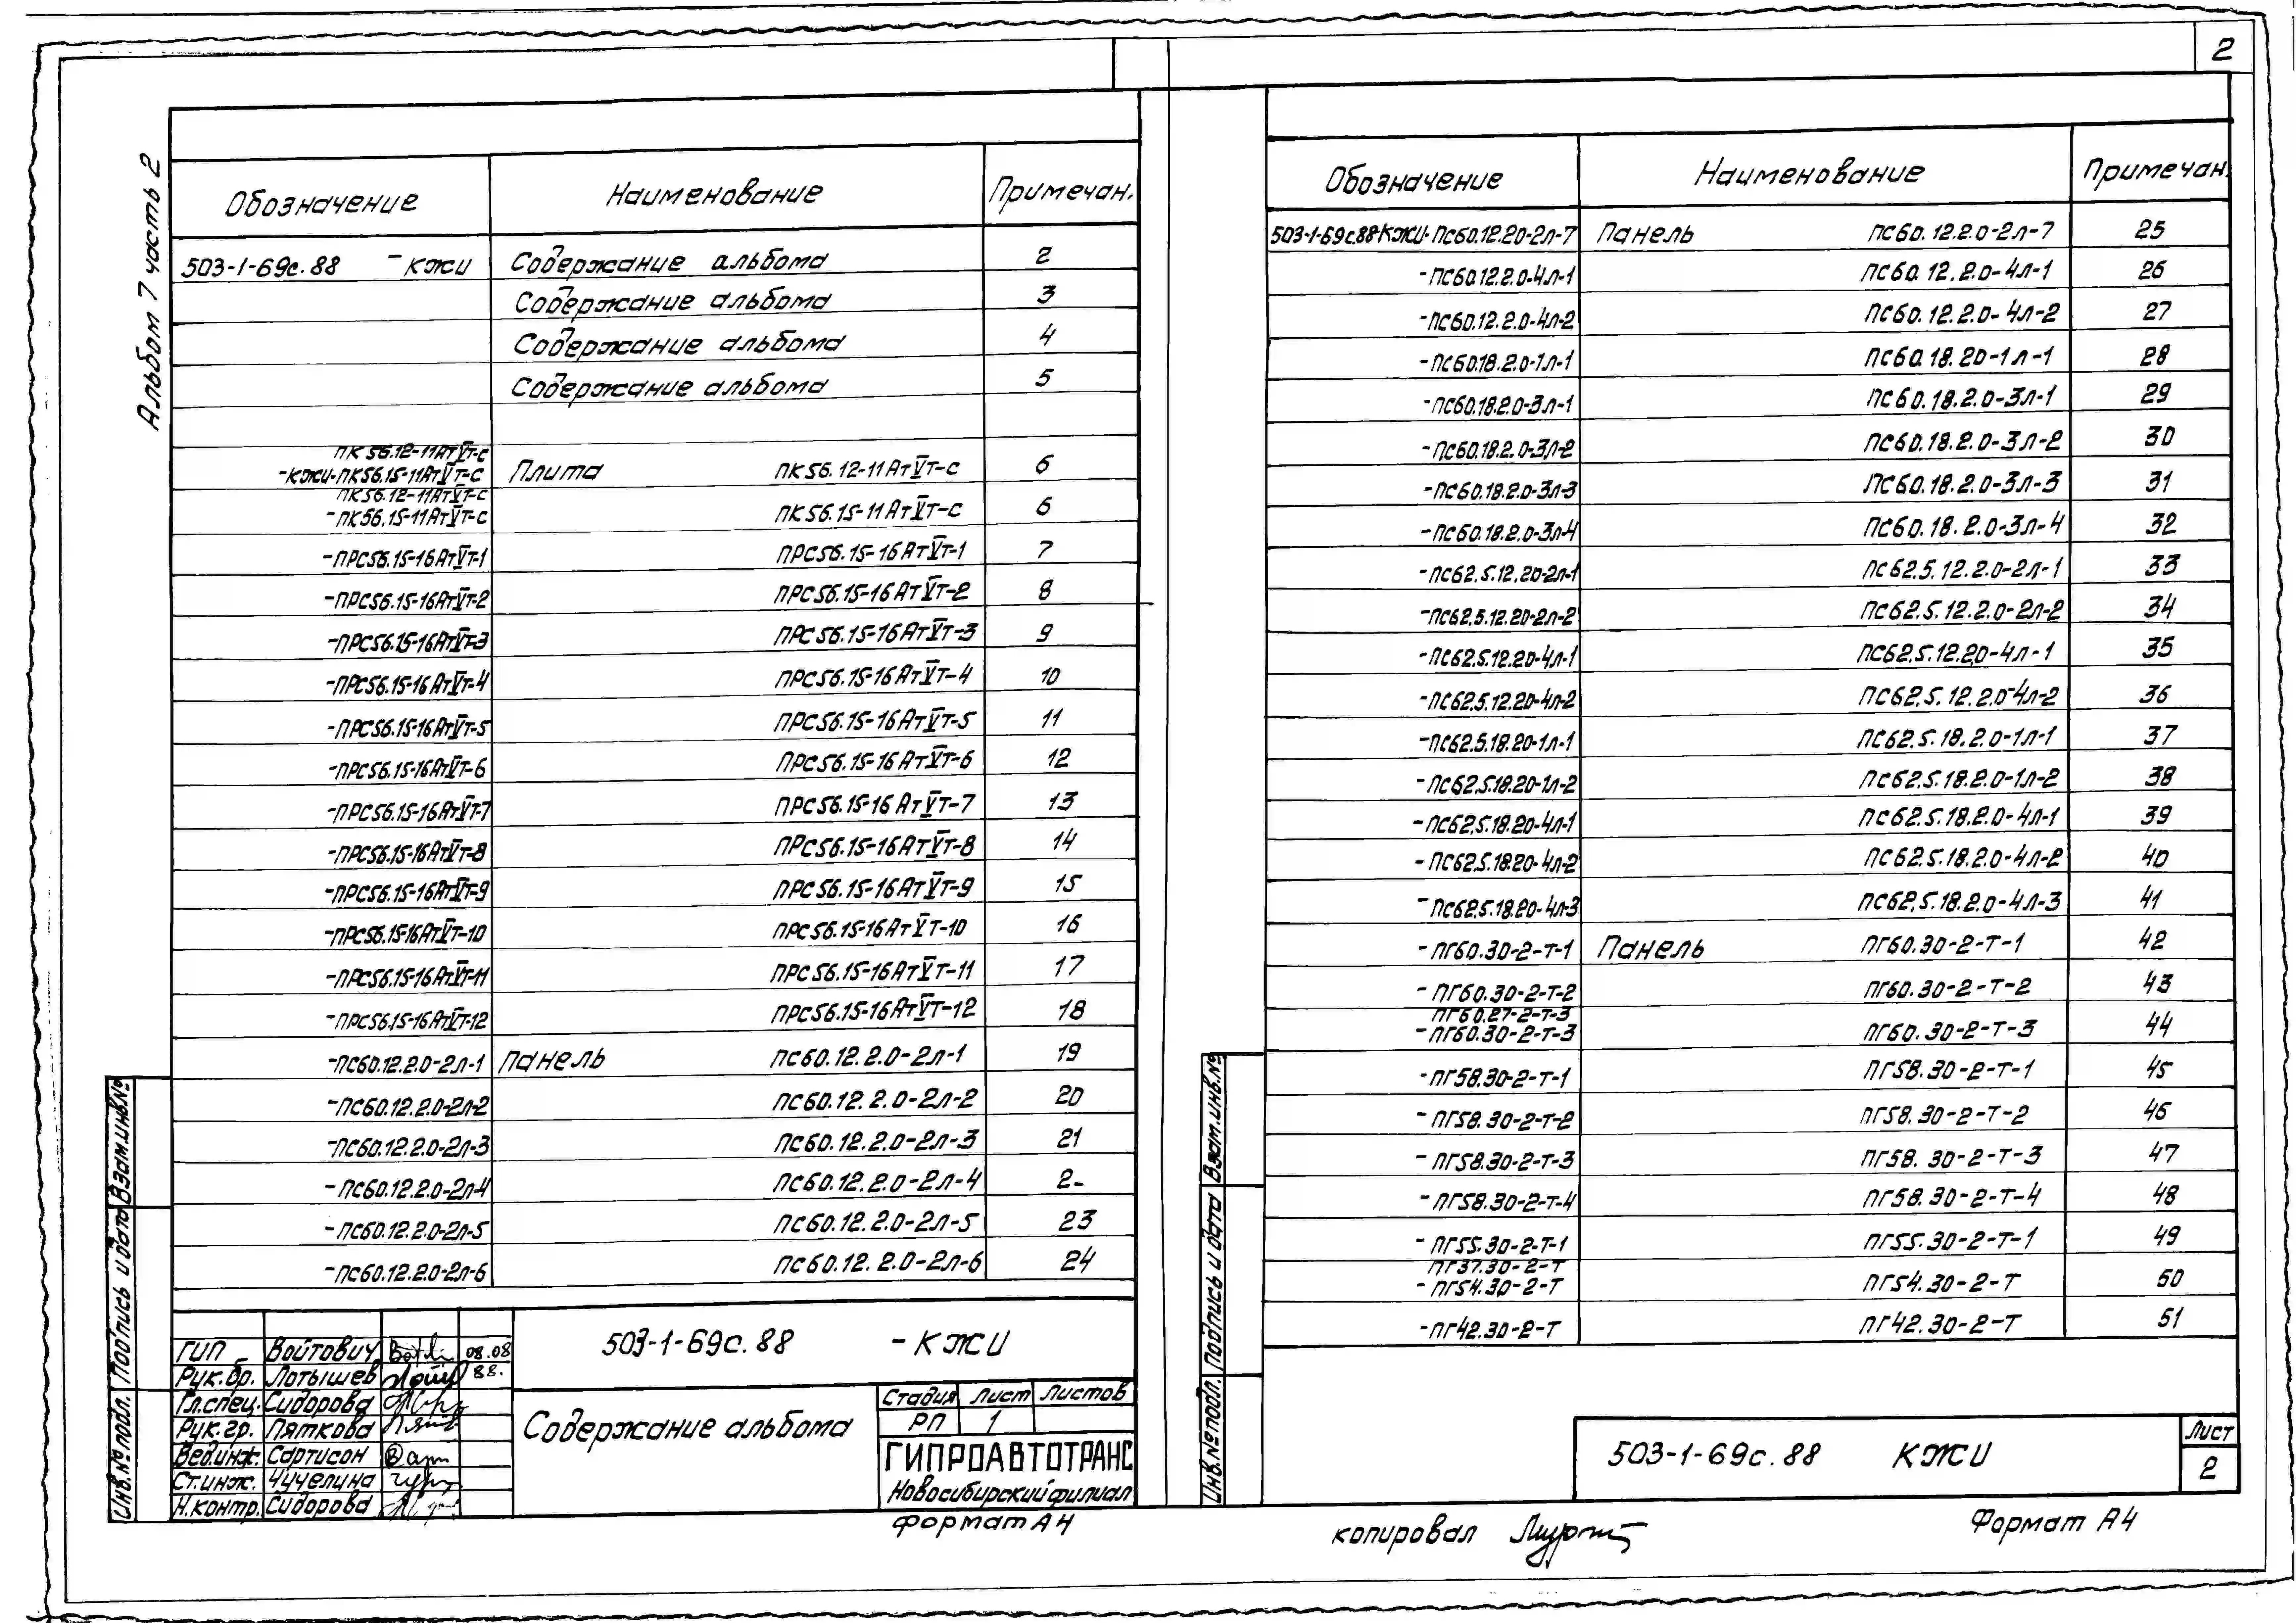 2
Альбом 7 часть 2
Обозначение Наименование Примечан.
503-1-69с.88 -КЖИ Содержание альбома 2
Содержание альбома 3
Содержание альбома 4
Содержание альбома 5
ПК56.12-11АтVт-с
-КЖИ-ПК56.15-11АтVт-с Плита ПК56.12-11АтVт-с 6
ПК56.12-11АтVт-с
-ПК56.15-11АтVт-с ПК56.15-11АтVт-с 6
-ПРС56.15-16АтVт-1 ПРС56.15-16АтVт-1 7
-ПРС56.15-16АтVт-2 ПРС56.15-16АтVт-2 8
-ПРС56.15-16АтVт-3 ПРС56.15-16АтVт-3 9
-ПРС56.15-16АтVт-4 ПРС56.15-16АтVт-4 10
-ПРС56.15-16АтVт-5 ПРС56.15-16АтVт-5 11
-ПРС56.15-16АтVт-6 ПРС56.15-16АтVт-6 12
-ПРС56.15-16АтVт-7 ПРС56.15-16АтVт-7 13
-ПРС56.15-16АтVт-8 ПРС56.15-16АтVт-8 14
-ПРС56.15-16АтVт-9 ПРС56.15-16АтVт-9 15
-ПРС56.15-16АтVт-10 ПРС56.15-16АтVт-10 16
-ПРС56.15-16АтVт-11 ПРС56.15-16АтVт-11 17
-ПРС56.15-16АтVт-12 ПРС56.15-16АтVт-12 18
-ПС60.12.2.0-2л-1 Панель ПС60.12.2.0-2л-1 19
-ПС60.12.2.0-2л-2 ПС60.12.2.0-2л-2 20
-ПС60.12.2.0-2л-3 ПС60.12.2.0-2л-3 21
-ПС60.12.2.0-2л-4 ПС60.12.2.0-2л-4 2-
-ПС60.12.2.0-2л-5 ПС60.12.2.0-2л-5 23
-ПС60.12.2.0-2л-6 ПС60.12.2.0-2л-6 24
ГИП Войтович 08.08
Рук.бр. Лотышев 88.
Гл.спец. Сидорова
Рук.гр. Пяткова
Вед.инж. Сартисон
Ст.инж. Чучелина
Н.контр. Сидорова
503-1-69с.88 -КЖИ
Содержание альбома
Стадия Лист Листов
РП 1
ГИПРОАВТОТРАНС
Новосибирский филиал
Формат А4
Инв.№ подл. Подпись и дата Взам.инв.№
Обозначение Наименование Примечан.
503-1-69с.88-КЖИ-ПС60.12.20-2л-7 Панель ПС60.12.2.0-2л-7 25
-ПС60.12.2.0-4л-1 ПС60.12.2.0-4л-1 26
-ПС60.12.2.0-4л-2 ПС60.12.2.0-4л-2 27
-ПС60.18.2.0-1л-1 ПС60.18.20-1л-1 28
-ПС60.18.2.0-3л-1 ПС60.18.2.0-3л-1 29
-ПС60.18.2.0-3л-2 ПС60.18.2.0-3л-2 30
-ПС60.18.2.0-3л-3 ПС60.18.2.0-3л-3 31
-ПС60.18.2.0-3л-4 ПС60.18.2.0-3л-4 32
-ПС62.5.12.20-2л-1 ПС62.5.12.2.0-2л-1 33
-ПС62.5.12.20-2л-2 ПС62.5.12.2.0-2л-2 34
-ПС62.5.12.20-4л-1 ПС62.5.12.2.0-4л-1 35
-ПС62.5.12.20-4л-2 ПС62.5.12.2.0-4л-2 36
-ПС62.5.18.20-1л-1 ПС62.5.18.2.0-1л-1 37
-ПС62.5.18.20-1л-2 ПС62.5.18.2.0-1л-2 38
-ПС62.5.18.20-4л-1 ПС62.5.18.2.0-4л-1 39
-ПС62.5.18.20-4л-2 ПС62.5.18.2.0-4л-2 40
-ПС62.5.18.20-4л-3 ПС62.5.18.2.0-4л-3 41
-ПГ60.30-2-Т-1 Панель ПГ60.30-2-Т-1 42
-ПГ60.30-2-Т-2 ПГ60.30-2-Т-2 43
ПГ60.27-2-Т-3
-ПГ60.30-2-Т-3 ПГ60.30-2-Т-3 44
-ПГ58.30-2-Т-1 ПГ58.30-2-Т-1 45
-ПГ58.30-2-Т-2 ПГ58.30-2-Т-2 46
-ПГ58.30-2-Т-3 ПГ58.30-2-Т-3 47
-ПГ58.30-2-Т-4 ПГ58.30-2-Т-4 48
-ПГ55.30-2-Т-1 ПГ55.30-2-Т-1 49
ПГ37.30-2-Т
-ПГ54.30-2-Т ПГ54.30-2-Т 50
-ПГ42.30-2-Т ПГ42.30-2-Т 51
Инв.№ подл. Подпись и дата Взам.инв.№
503-1-69с.88 КЖИ
Лист
2
копировал
Формат А4